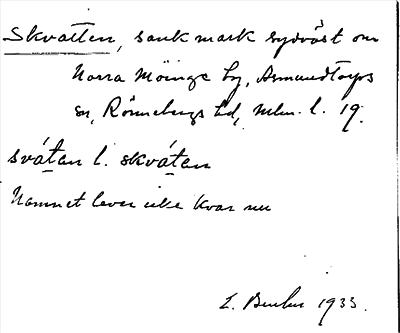 Skvatten, sank mark sydväst om
Norra Möinge by, Asmundtorps
sn, Rönnebergs hd, Mlm. l. 19.
svátan l. skvátan
Namnet lever icke kvar nu
1933.